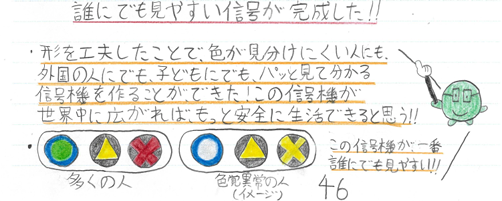 誰にでも見やすい信号が完成した!!
・形を工夫したことで、色が見分けにくい人にも、
外国の人にでも、子どもにでも、パッと見て分かる
信号機を作ることができた!この信号機が
世界中に広がれば、もっと安全に生活できると思う!!
多くの人
色覚異常の人
(イメージ)
この信号機が、一番
誰にでも見やすい!!!
46